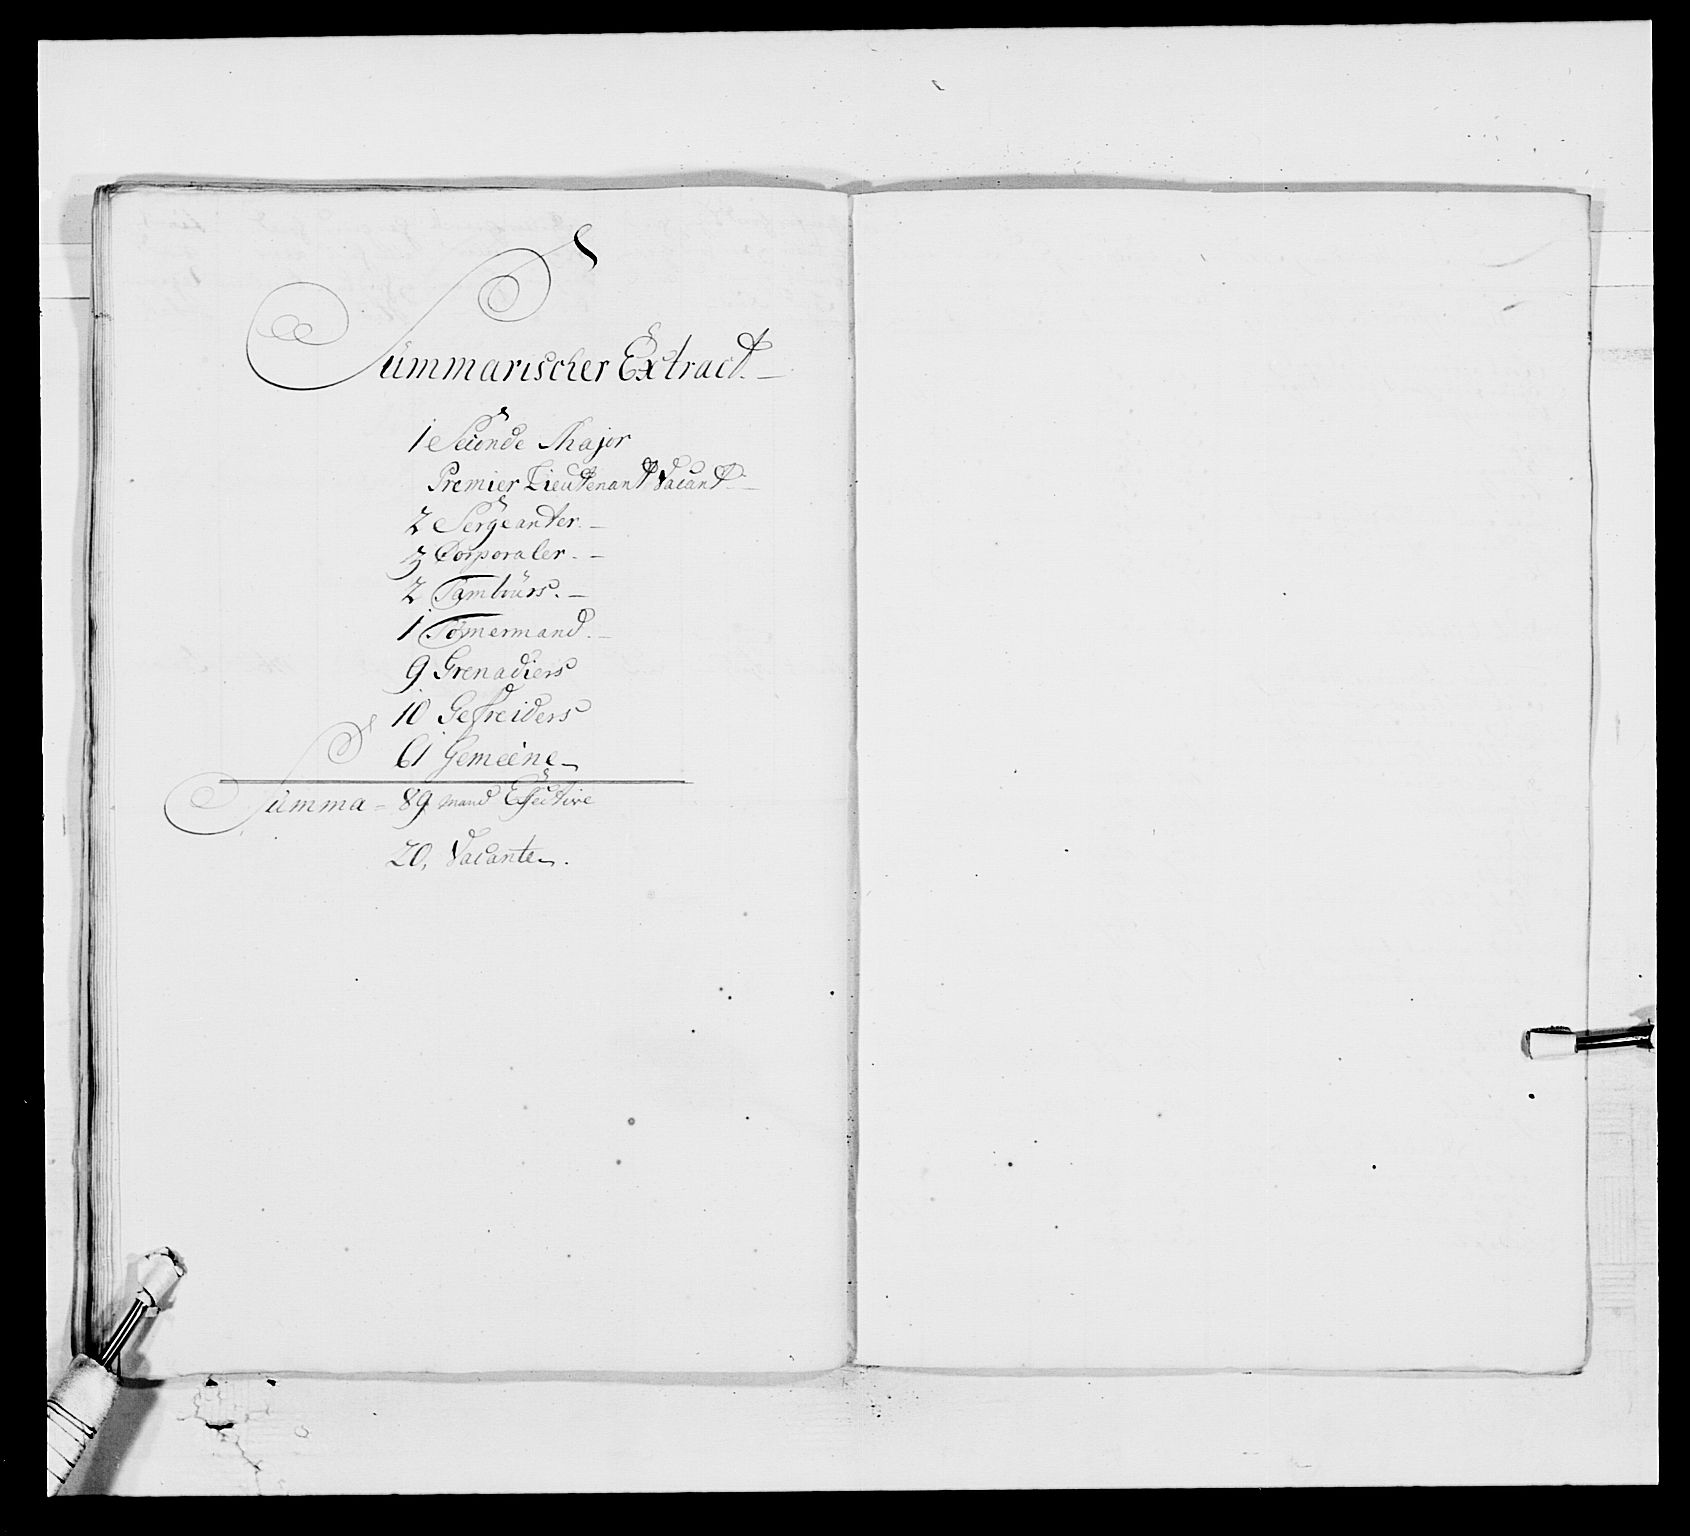 Summarischer Extract. —
1 Secunde Major
Premier Lieutenant Vacant —
2 Sergeanter. —
3 Corporaler. —
2 Tambürs. —
1 Tømermand. —
9 Grenadiers
10 Gefreiders
61 Gemeene
Summa = 89 mand Effective
20, Vacante.